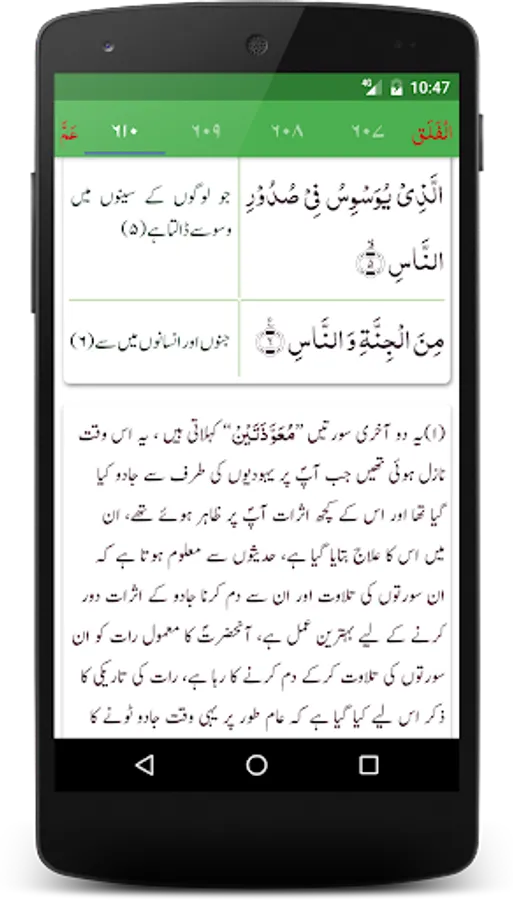 4G 10:47
الْفَلَق ٦٠٧ ٦٠٨ ٦٠٩ ٦١٠ عَمَّ
الَّذِیْ یُوَسْوِسُ فِیْ صُدُوْرِ
النَّاسِ ۙ﴿۵﴾
جو لوگوں کے سینوں میں
وسوسے ڈالتا ہے (۵)
مِنَ الْجِنَّةِ وَ النَّاسِ ﴿۶﴾
جنوں اور انسانوں میں سے (۶)
(۱) یہ دو آخری سورتیں “مُعَوَّذَتَیْنْ” کہلاتی ہیں ، یہ اس وقت
نازل ہوئی تھیں جب آپؐ پر یہودیوں کی طرف سے جادو کیا
گیا تھا اور اس کے کچھ اثرات آپؐ پر ظاہر ہوئے تھے، ان
میں اس کا علاج بتایا گیا ہے، حدیثوں سے معلوم ہوتا ہے کہ
ان سورتوں کی تلاوت اور ان سے دم کرنا جادو کے اثرات دور
کرنے کے لیے بہترین عمل ہے، آنحضرتؐ کا معمول رات کو ان
سورتوں کی تلاوت کرکے دم کرنے کا رہا ہے، رات کی تاریکی کا
ذکر اس لیے کیا گیا ہے کہ عام طور پر یہی وقت جادو ٹونے کا